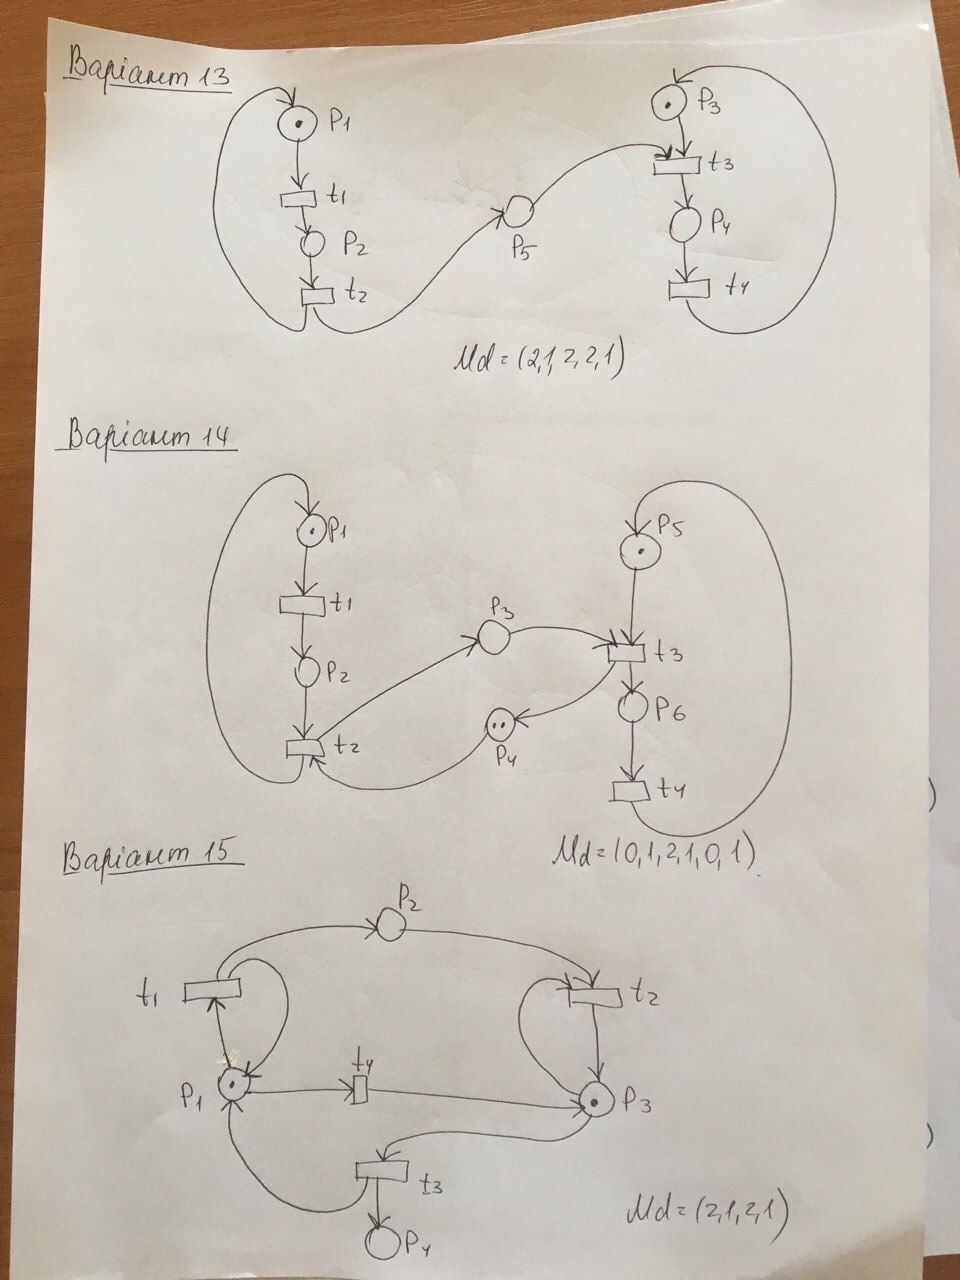 Варіант 13
P1
P3
t1
t3
P2
P5
P4
t2
t4
Md = (2,1,2,2,1)
Варіант 14
P1
P5
t1
P3
t3
P2
P6
t2
P4
t4
Md = (0,1,2,1,0,1)
Варіант 15
P2
t1
t2
P1
t4
P3
t3
Md = (2,1,2,1)
P4